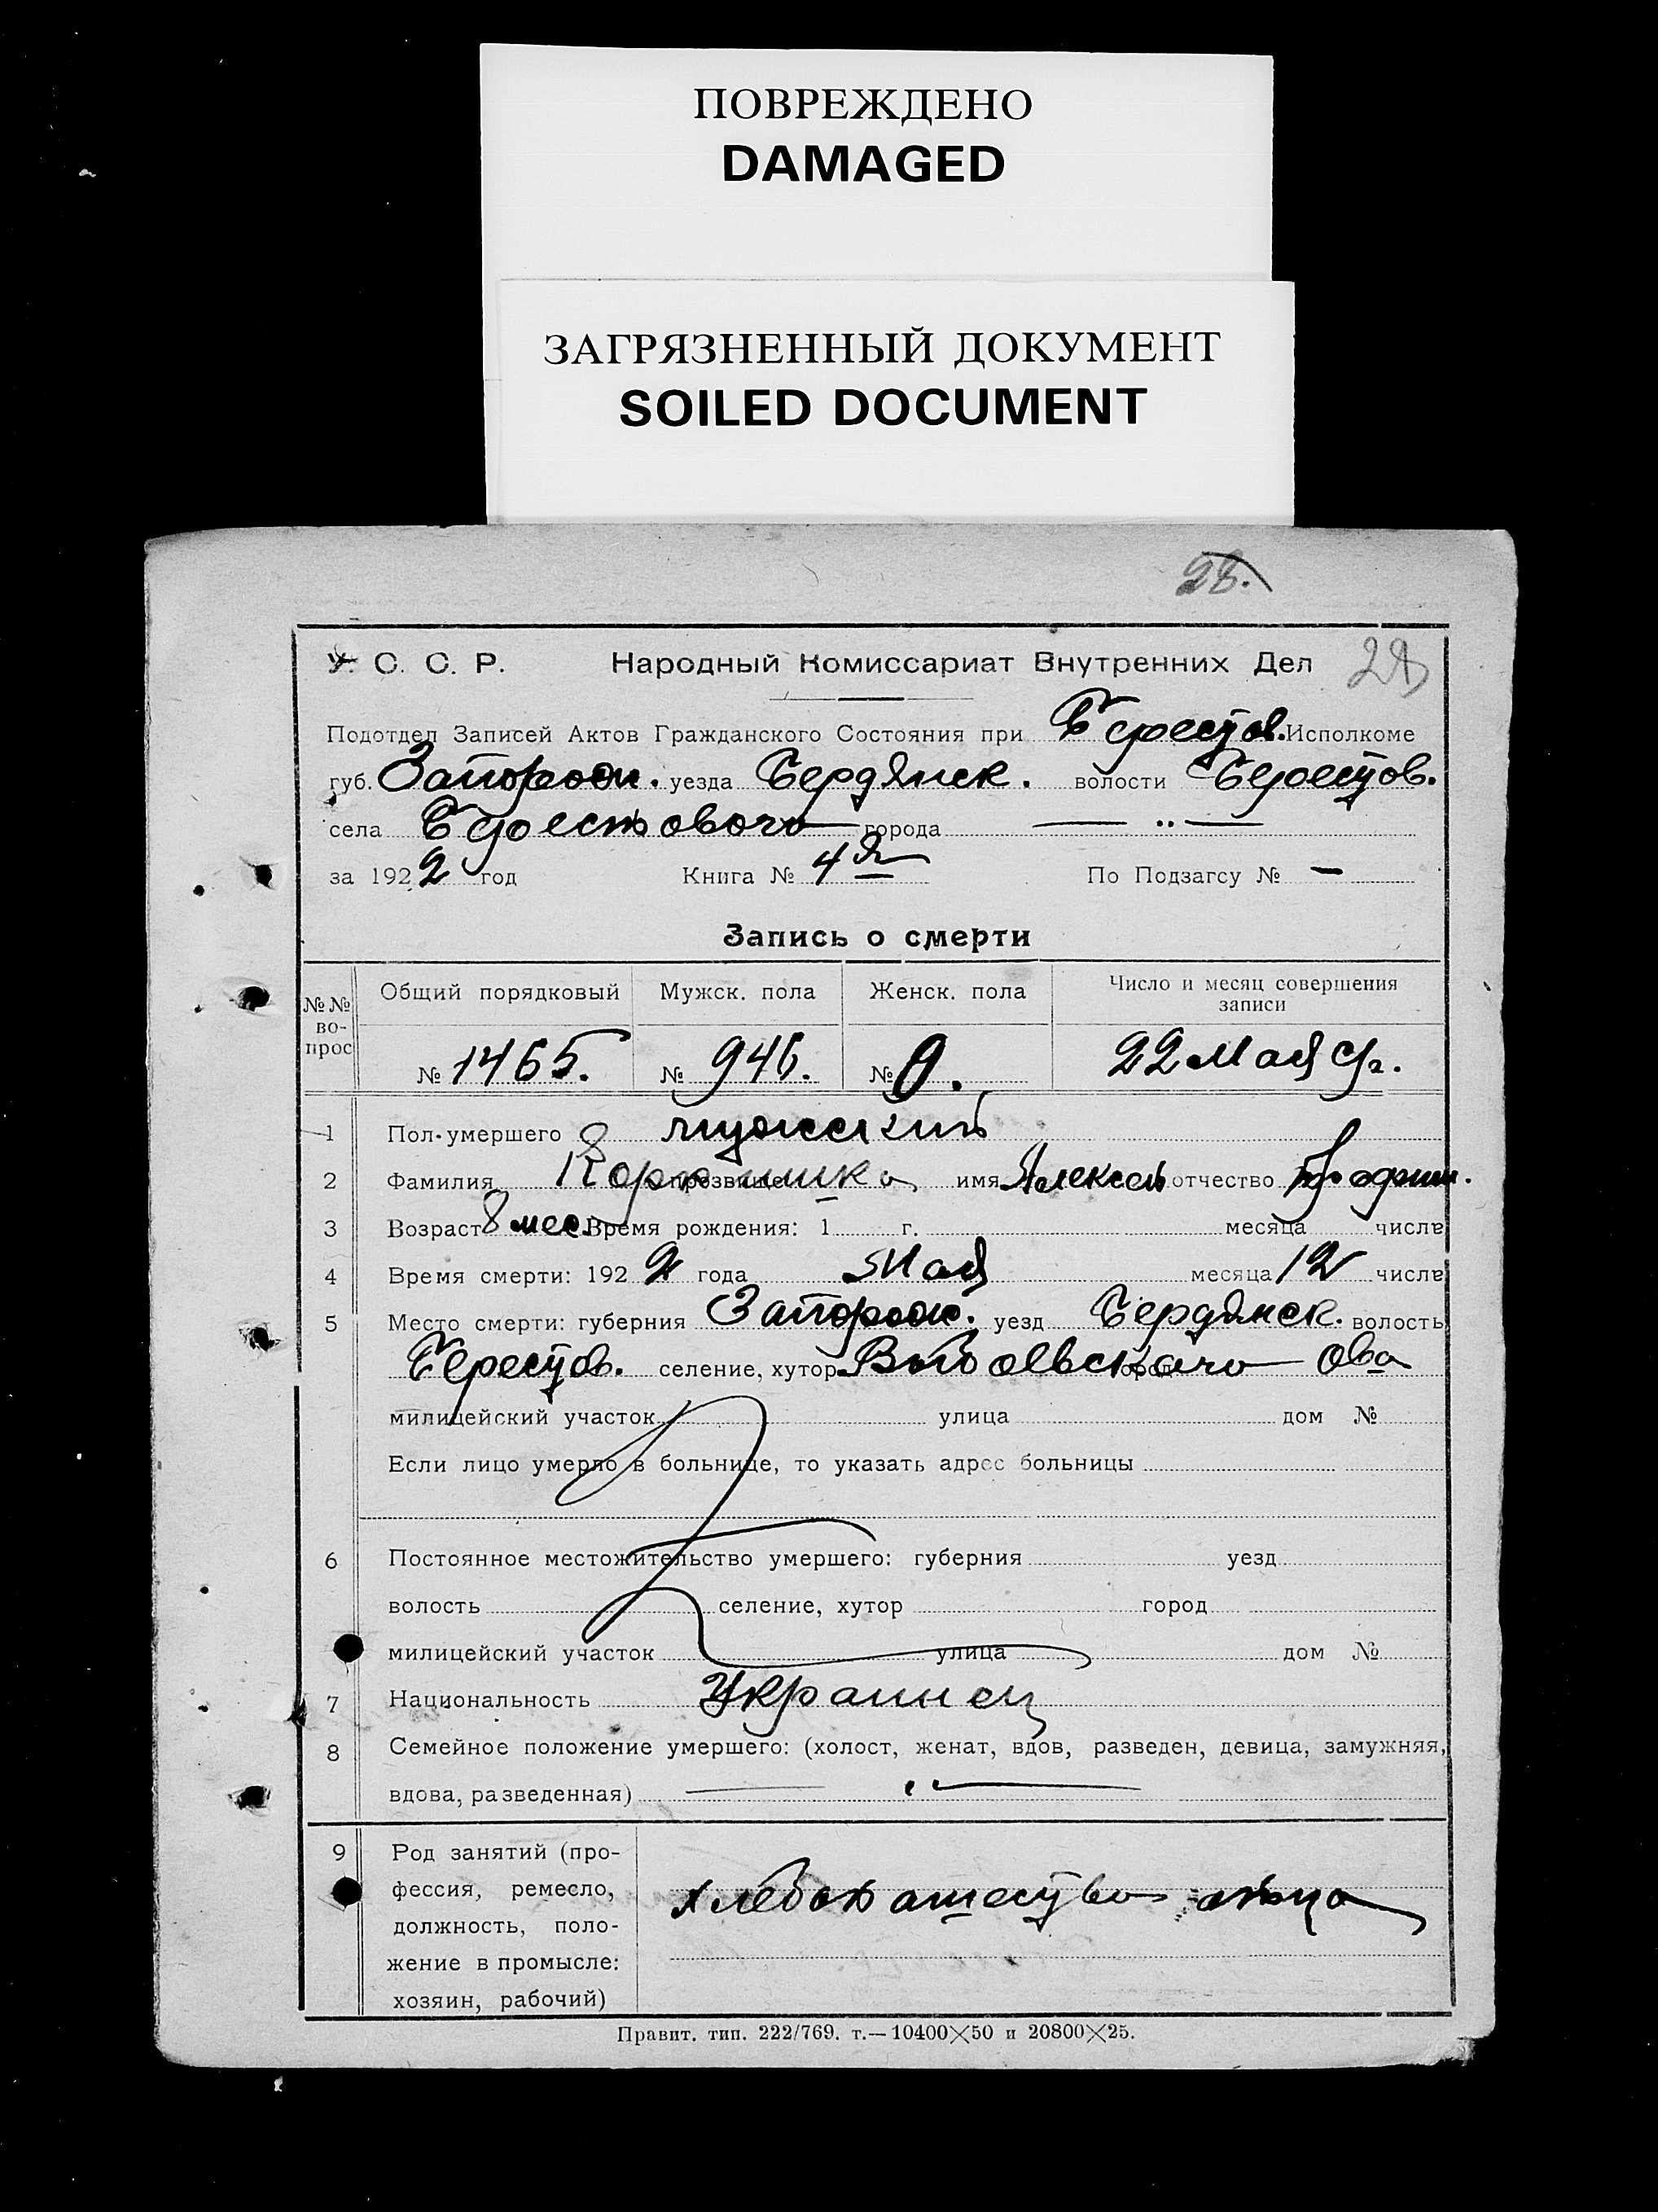 ПОВРЕЖДЕНО
DAMAGED
ЗАГРЯЗНЕННЫЙ ДОКУМЕНТ
SOILED DOCUMENT
28.
У. С. С. Р. Народный Комиссариат Внутренних Дел 28
Подотдел Записей Актов Гражданского Состояния при Берестов. Исполкоме
губ. Запорож. уезда Бердянск. волости Берестов.
села Берестового города — „ —
за 1922 год Книга № 4я По Подзагсу № —
Запись о смерти
№№ вопрос Общий порядковый Мужск. пола Женск. пола Число и месяц совершения записи
№ 1465. № 946. № 0. 22 Мая
1 Пол умершего мужский
2 Фамилия прозвище имя Алексей отчество
3 Возраст 8 мес. Время рождения: 1 г. месяца числа
4 Время смерти: 1922 года Мая месяца 12 числа
5 Место смерти: губерния Запорож. уезд Бердянск. волость
Берестов. селение, хутор город
милицейский участок улица дом №
Если лицо умерло в больнице, то указать адрес больницы
6 Постоянное местожительство умершего: губерния уезд
волость селение, хутор город
милицейский участок улица дом №
7 Национальность Украинец
8 Семейное положение умершего: (холост, женат, вдов, разведен, девица, замужняя,
вдова, разведенная) — „ —
9 Род занятий (про-
фессия, ремесло,
хлебопашество отца
должность, поло-
жение в промысле:
хозяин, рабочий)
Правит. тип. 222/769. т.—10400×50 и 20800×25.